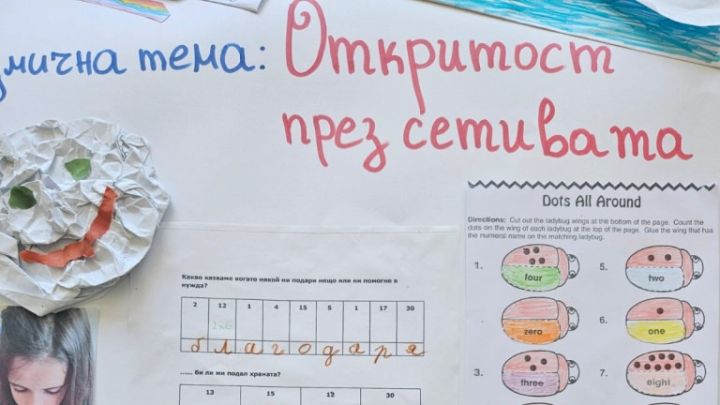 мична тема: Откритост
през сетивата
Dots All Around
Directions: Cut out the ladybug wings at the bottom of the page. Count the
dots on the wing of each ladybug at the top of the page. Glue the wing that has
the numeral name on the matching ladybug.
1. four 5. two
zero 6. one
3. three 7. eight
Какво казваме когато някой ни подари нещо или ни помогне в
нужда?
2 12 1 4 15 5 1 17 30
б л а г о д а р я
...... би ли ми подал храната?
13 15 12 30